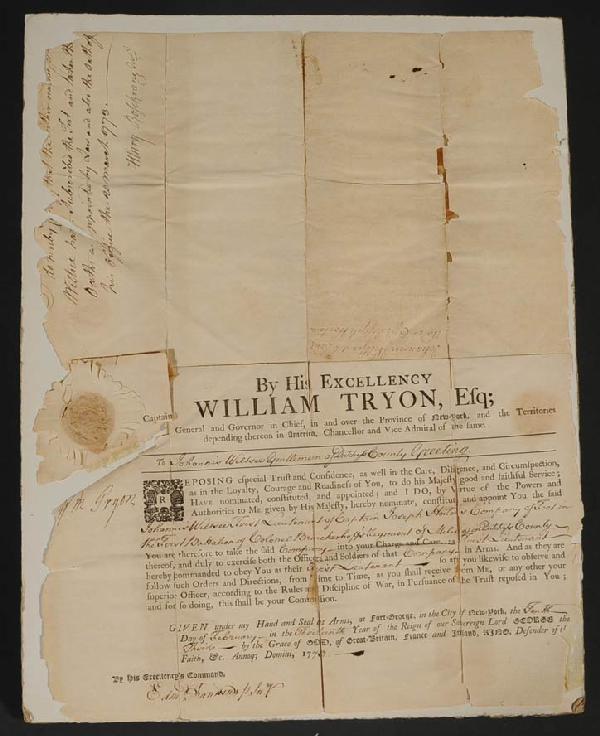 that the within mention
Wiltse has Subscribed the Test and taken the
Oaths as required by Law and also the Oath of
his Office the 20 march 1773.
By His Excellency
WILLIAM TRYON, Esq;
Captain General and Governor in Chief, in and over the Province of New-York, and the Territories
depending thereon in America, Chancellor and Vice Admiral of the same.
To Johannis Wiltse Gentleman of Dutchess County Greeting.
REPOSING especial Trust and Confidence, as well in the Care, Diligence, and Circumspection,
as in the Loyalty, Courage and Readiness of You, to do his Majesty good and faithful Service;
Have nominated, constituted, and appointed; and I DO, by Virtue of the Powers and
Authorities to Me given by His Majesty, hereby nominate, constitute and appoint You the said
Johannis Wiltse First Lieutenant of Captain Joseph Company of Foot in
the First Battalion of Colonel Regiment of Militia in Dutchess County
You are therefore to take the said Company into your Charge and Care, as First Lieutenant
thereof, and duly to exercise both the Officers and Soldiers of that Company in Arms. And as they are
hereby commanded to obey You as their First Lieutenant so are you likewise to observe and
follow such Orders and Directions, from Time to Time, as you shall receive from Me, or any other your
superior Officer, according to the Rules and Discipline of War, in Pursuance of the Trust reposed in You;
and for so doing, this shall be your Commission.
GIVEN under my Hand and Seal at Arms, at Fort-George, in the City of New-York, the Tenth
Day of February in the Thirteenth Year of the Reign of our Sovereign Lord GEORGE the
Third by the Grace of GOD, of Great-Britain, France and Ireland, KING, Defender of the
Faith, &c. Annoq; Domini, 1773
Wm Tryon
By His Excellency's Command,